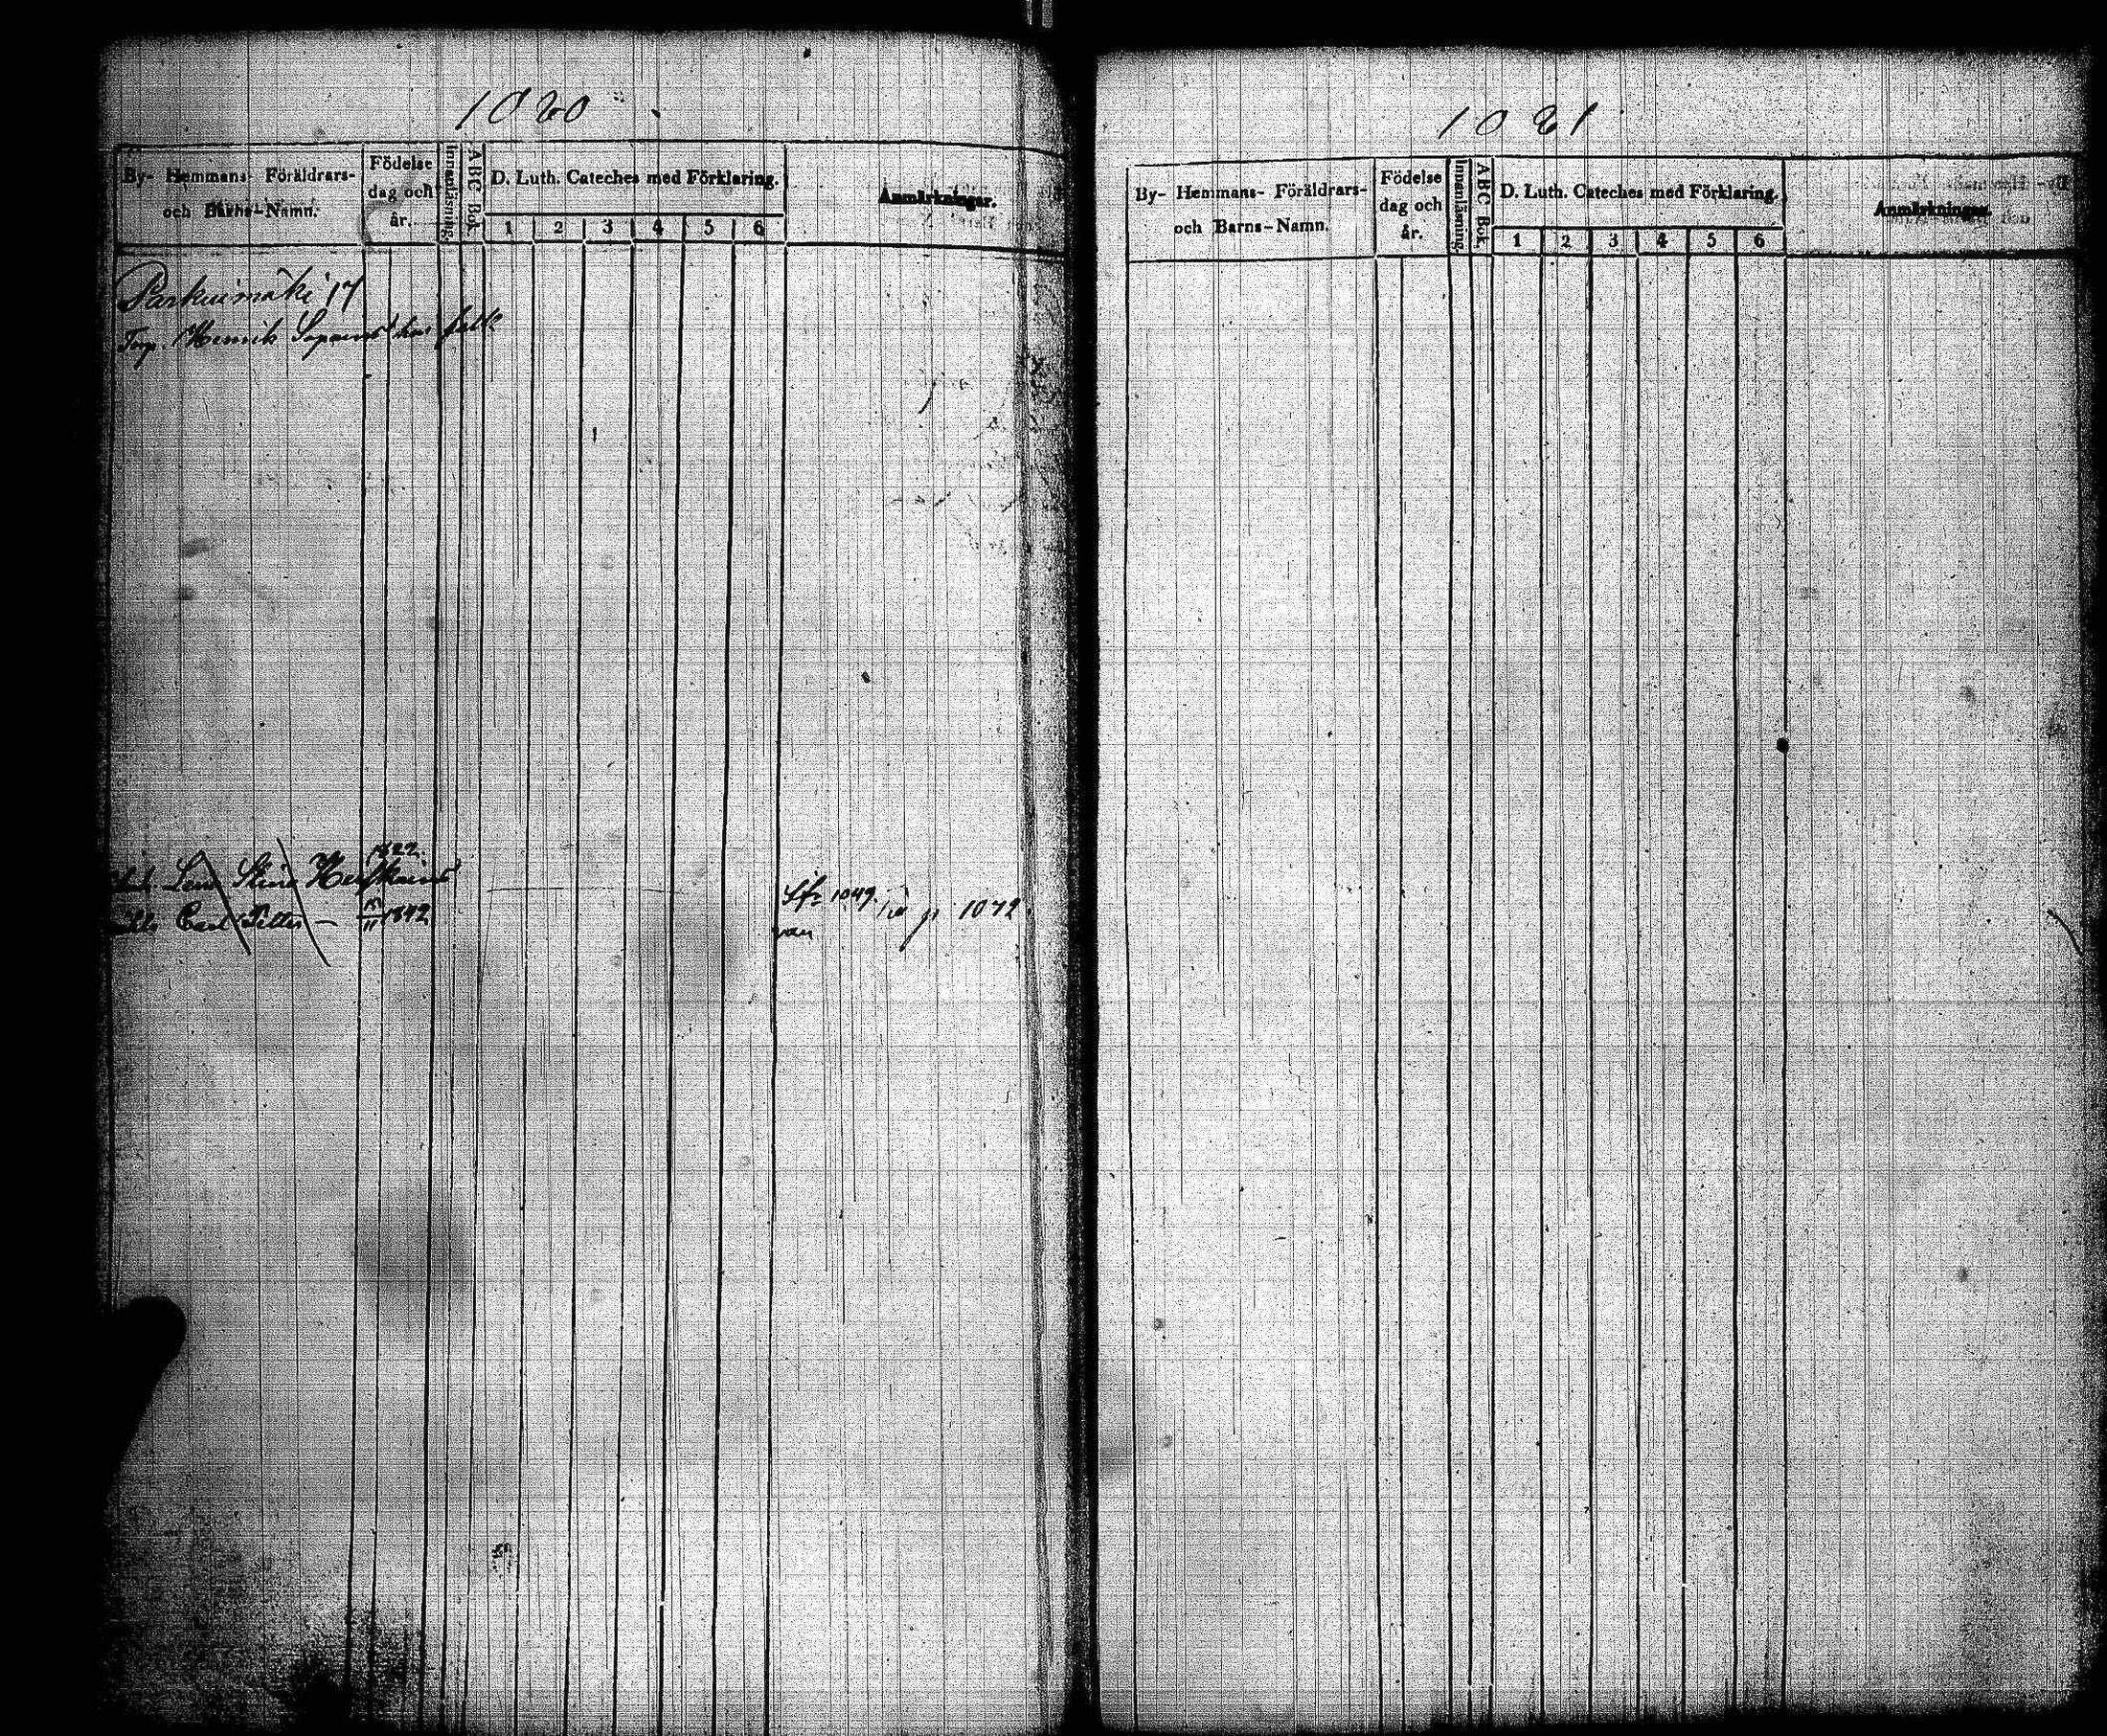 1020
By- Hemmans- Föräldrars-
och Barns-Namn.
Födelse
dag och
år.
Innanläsning.
ABC Bok.
D. Luth. Cateches med Förklaring.
1 2 3 4 5 6
Anmärkningar.
Parkuimäki 17
Torp. Henrik
Lena Stina
1822
Carl Petter — 1842
Sf: 1049.
p 1072
1021
By- Hemmans- Föräldrars-
och Barns-Namn.
Födelse
dag och
år.
Innanläsning.
ABC Bok.
D. Luth. Cateches med Förklaring.
1 2 3 4 5 6
Anmärkningar.